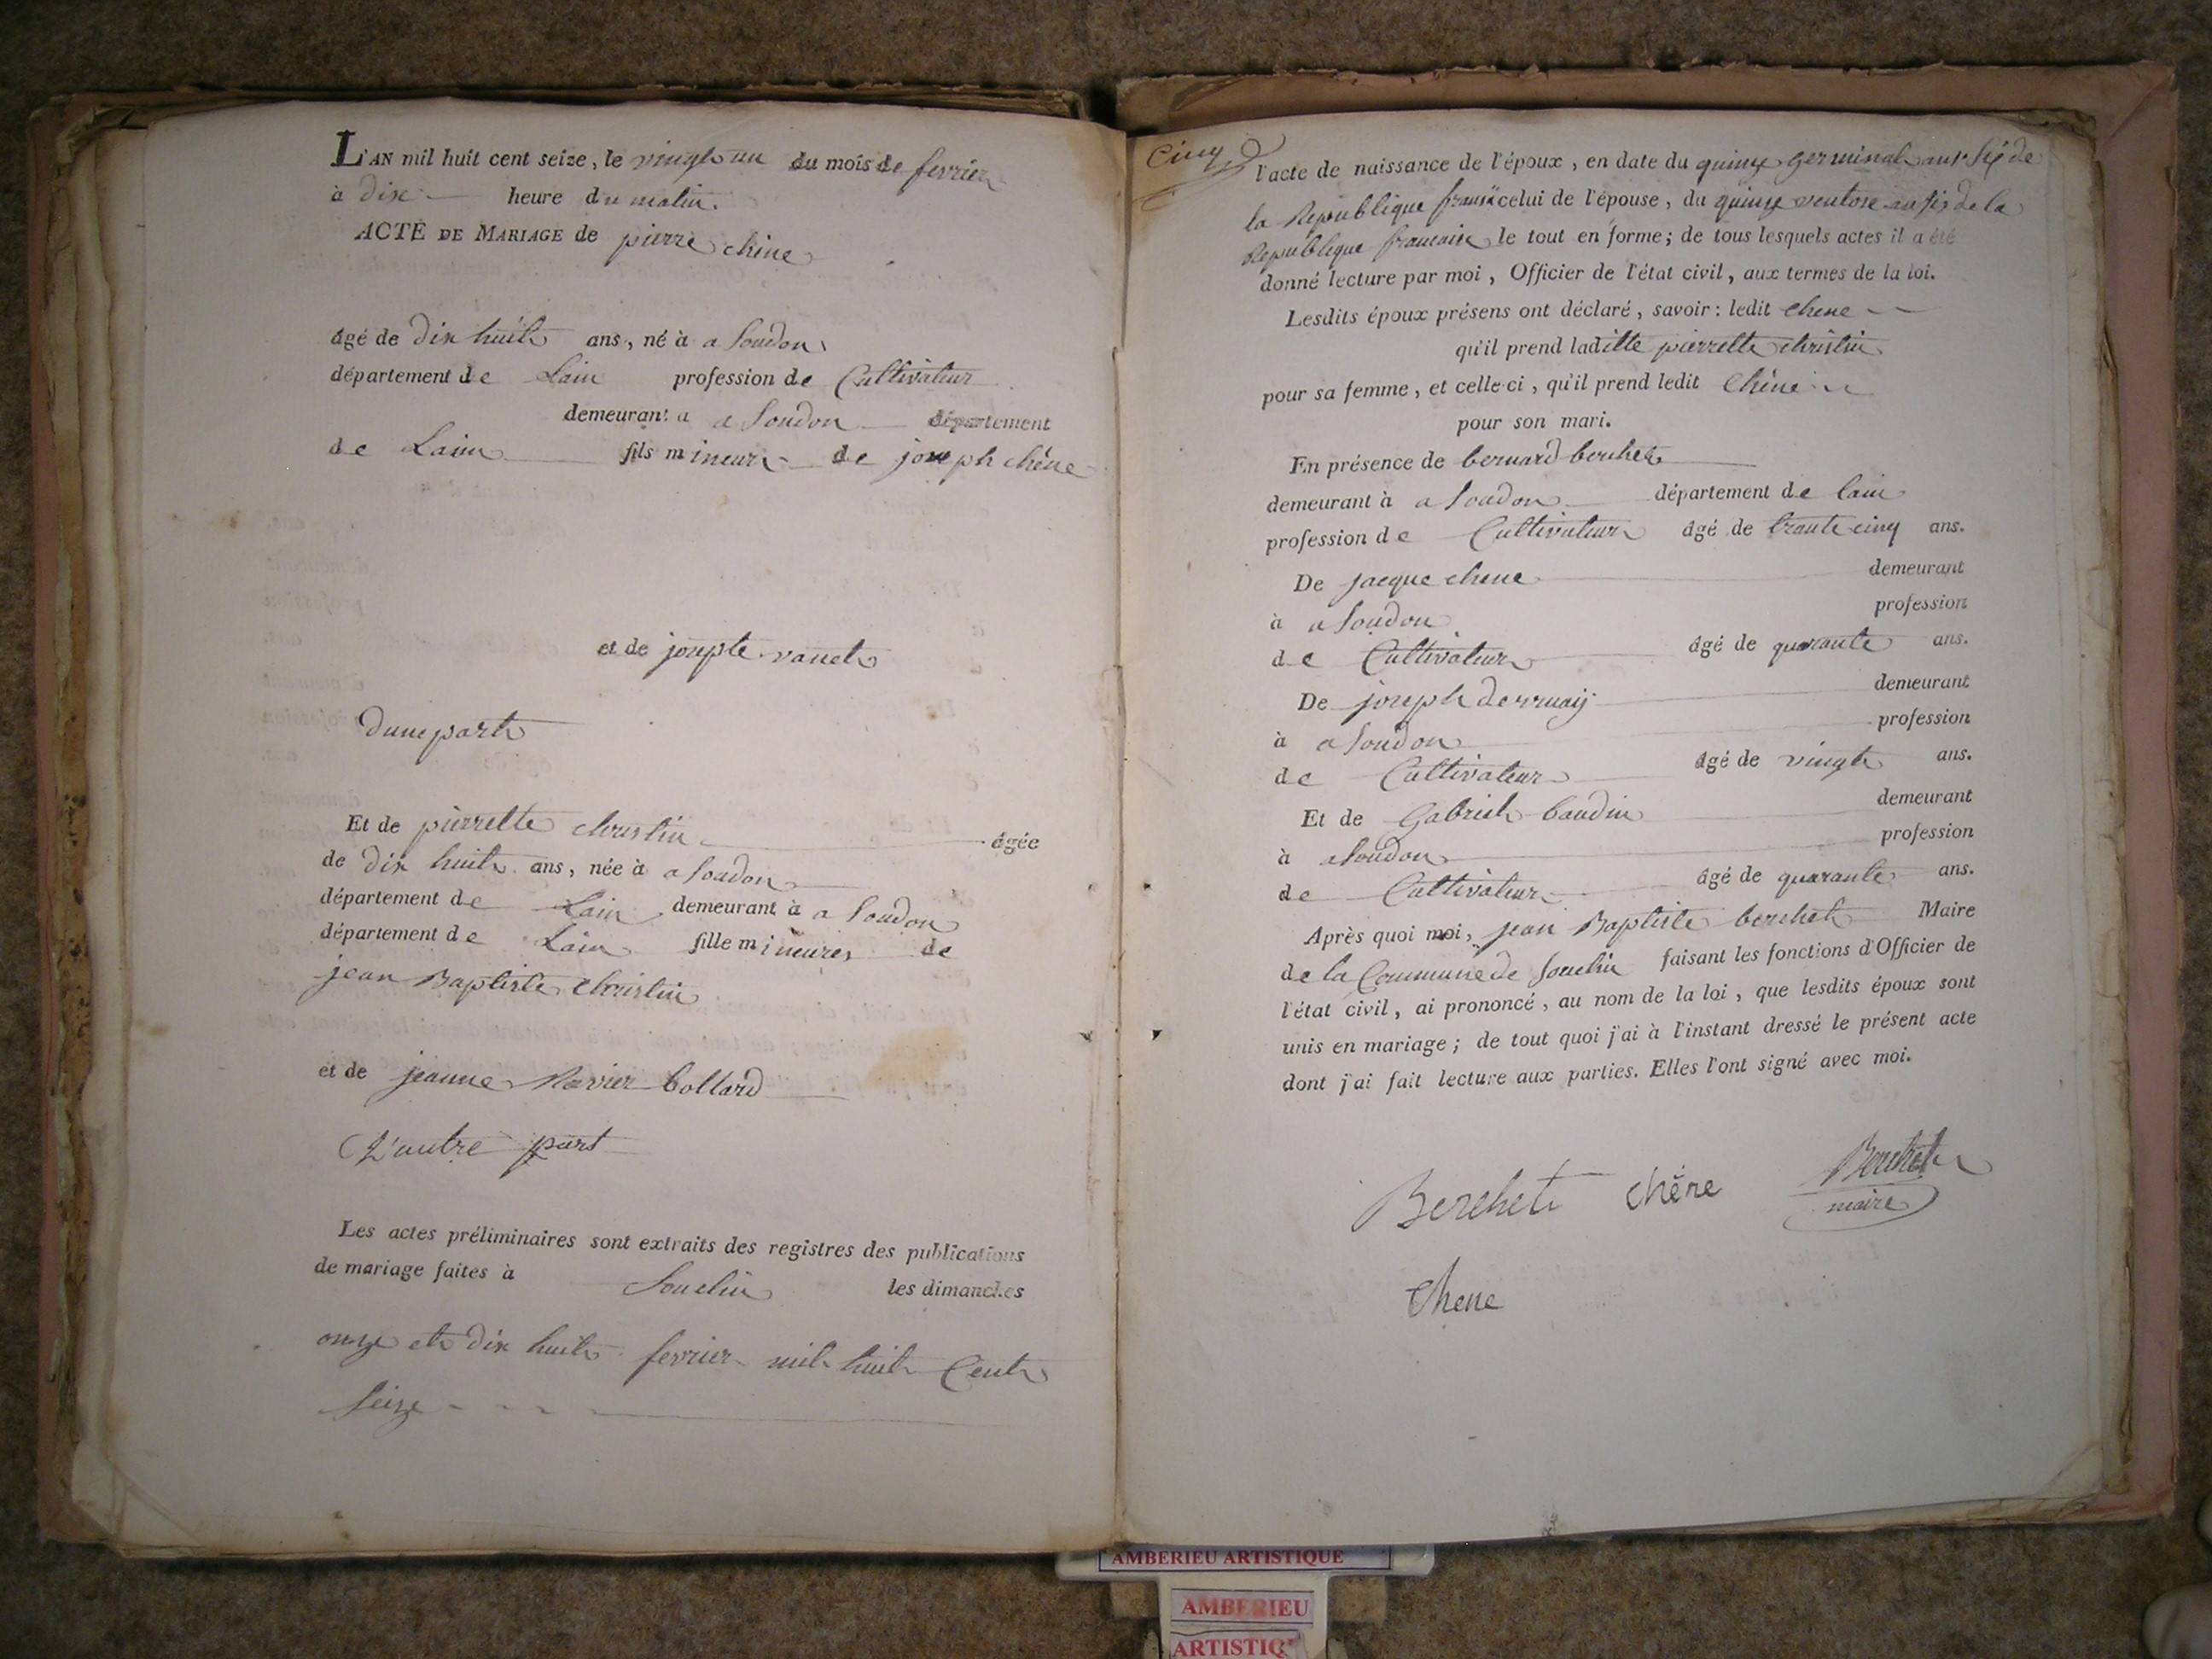 L'AN mil huit cent seize, le vingt un du mois de fevrier
à dix heure du matin.
ACTE DE MARIAGE de pierre chêne
âgé de dix huit ans, né à a Soudon
département de Lain profession de Cultivateur
demeurant a a Soudon département
de Lain fils mineur de joseph chêne
et de josepte vanet
dune part
Et de pierrette christin âgée
de dix huit ans, née à a Soudon
département de Lain demeurant à a Soudon
département de Lain fille mineure de
jean Baptiste Christin
et de jeanne Marier bollard
D'autre part
Les actes préliminaires sont extraits des registres des publications
de mariage faites à Souclin les dimanches
onze et dix huit fevrier mil huit Cent
seize
Cinq
l'acte de naissance de l'époux, en date du quinze germinal an six de
la Republique franc celui de l'épouse, du quinze ventose an six de la
Republique francaise le tout en forme; de tous lesquels actes il a été
donné lecture par moi, Officier de l'état civil, aux termes de la loi.
Lesdits époux présens ont déclaré, savoir: ledit chene
qu'il prend laditte pierrette christin
pour sa femme, et celle-ci, qu'il prend ledit Chêne
pour son mari.
En présence de bernard berchet
demeurant à a Soudon département de lain
profession de Cultivateur âgé de trante cinq ans.
De jacque chene demeurant
à a Soudon profession
de Cultivateur âgé de quarante ans.
De joseph demeurant
à a Soudon profession
de Cultivateur âgé de vingt ans.
Et de Gabriel baudin demeurant
à a Soudon profession
de Cultivateur âgé de quarante ans.
Après quoi moi, jean Baptiste berchet Maire
de la Commune de Souclin faisant les fonctions d'Officier de
l'état civil, ai prononcé, au nom de la loi, que lesdits époux sont
unis en mariage; de tout quoi j'ai à l'instant dressé le présent acte
dont j'ai fait lecture aux parties. Elles l'ont signé avec moi.
Berchet chêne Berchet
maire
Chene
AMBERIEU ARTISTIQUE
AMBERIEU
ARTISTIQ